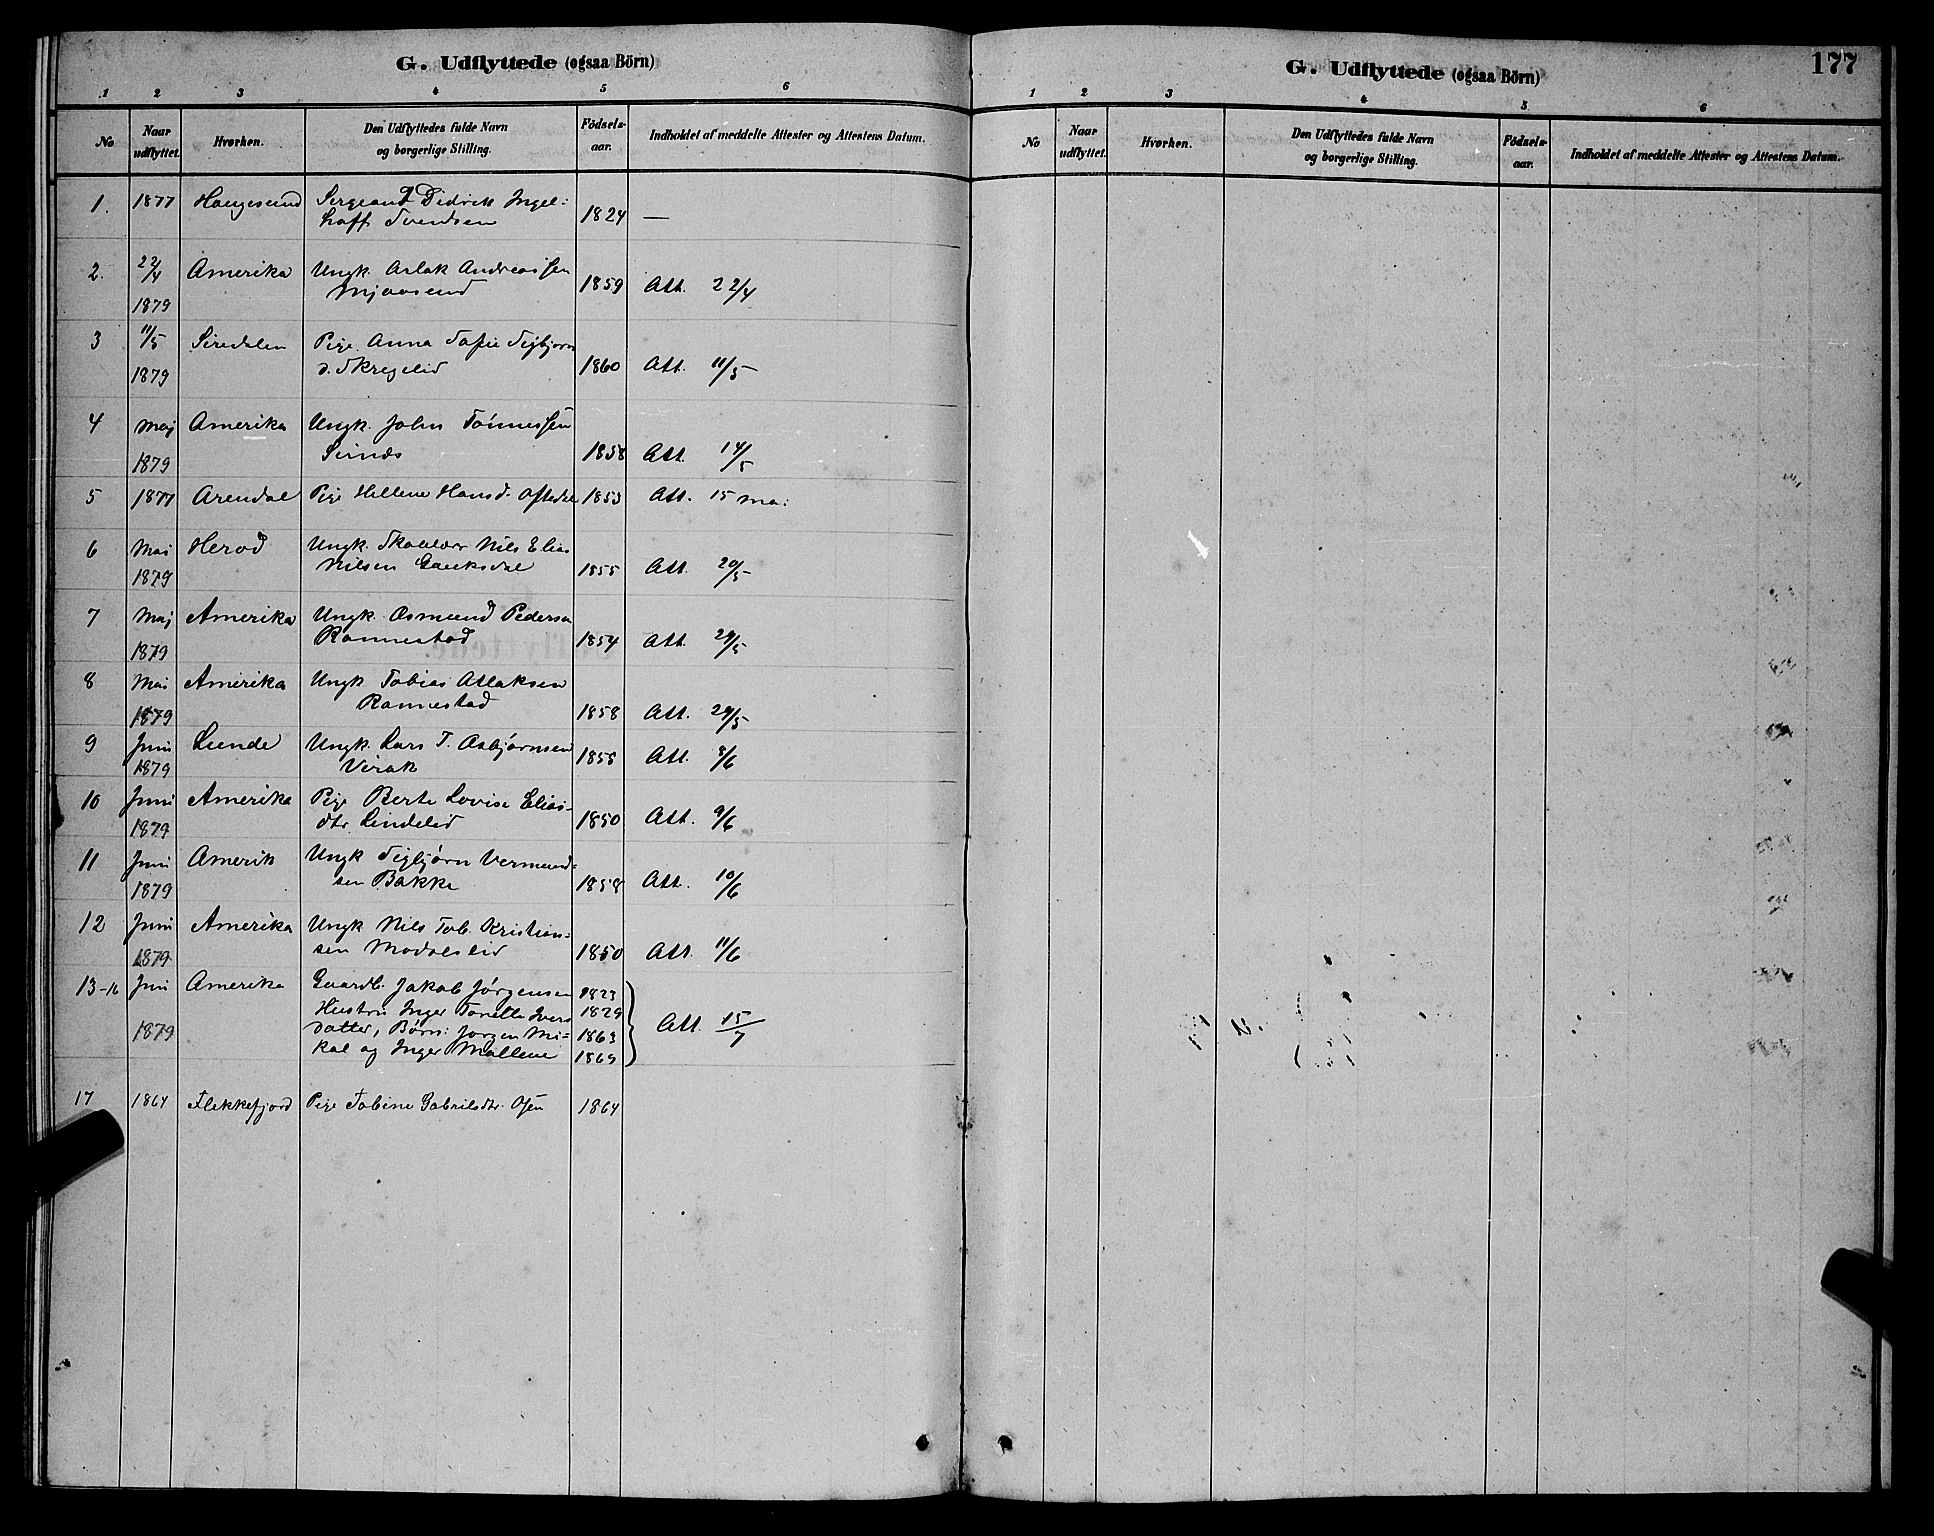 G. Udflyttede (ogsaa Börn)
1 2 3 4 5 6
No
Naar udflyttet.
Hvorhen.
Den Udflyttedes fulde Navn
og borgerlige Stilling.
Födsels-
aar.
Indholdet af meddelte Attester og Attestens Datum.
1. 1877 Haugesund Sergeant Didrik Ingel:
hoff Svendsen 1824 —
2. 22/4 Amerika Ungk. Aslak Andreassen
1879 Mjaasund 1859 Att. 22/4
3 11/5 Siredalen Pige Anna Sofie Sigbjørn
1879 d. Skregelid 1860 Att. 11/5
4 Maj Amerika Ungk. John Tönnessen
1879 Sirnæs 1858 Att. 14/5
5 1877 Arendal Pige Hellene Hansd. Oftedal 1853 Att. 15 Ma:
6 Mai Herod Ungk. Skolelær Nils Elias
1879 Nilsen Gauksdal 1855 Att. 20/5
7 Maj Amerika Ungk. Osmund Pedersen
1879 Rannestad 1854 Att. 29/5
8 Mai Amerika Ungk Tobias Atlaksen
1879 Rannestad 1858 Att. 29/5
9 Juni Lunde Ungk. Lars T. Asbjørnsen
1879 Virak 1858 Att. 8/6
10 Juni Amerika Pige Berte Lovise Elias-
1879 dtr. Lindelid 1850 Att. 9/6
11 Juni Amerik Ungk Sigbjørn Vermund-
1879 sen Bakke 1858 Att. 10/6
12 Juni Amerika Ungk Nils Tob. Kristian:
1879 sen Modalslid 1850 Att. 11/6
13-16 Juni Amerika Gaardb. Jakob Jørgensen 1823
Hustru Inger Tonette Ivers 1829
1879 datter, Børn: Jørgen Mi- 1863 Att. 15/7
kal og Inger Mallene 1869
17 1864 Flekkefjord Pige Tobine Gabrilsdtr. Osen 1864
G. Udflyttede (ogsaa Börn)
177
1 2 3 4 5 6
No
Naar udflyttet.
Hvorhen.
Den Udflyttedes fulde Navn
og borgerlige Stilling.
Födsels-
aar.
Indholdet af meddelte Attester og Attestens Datum.